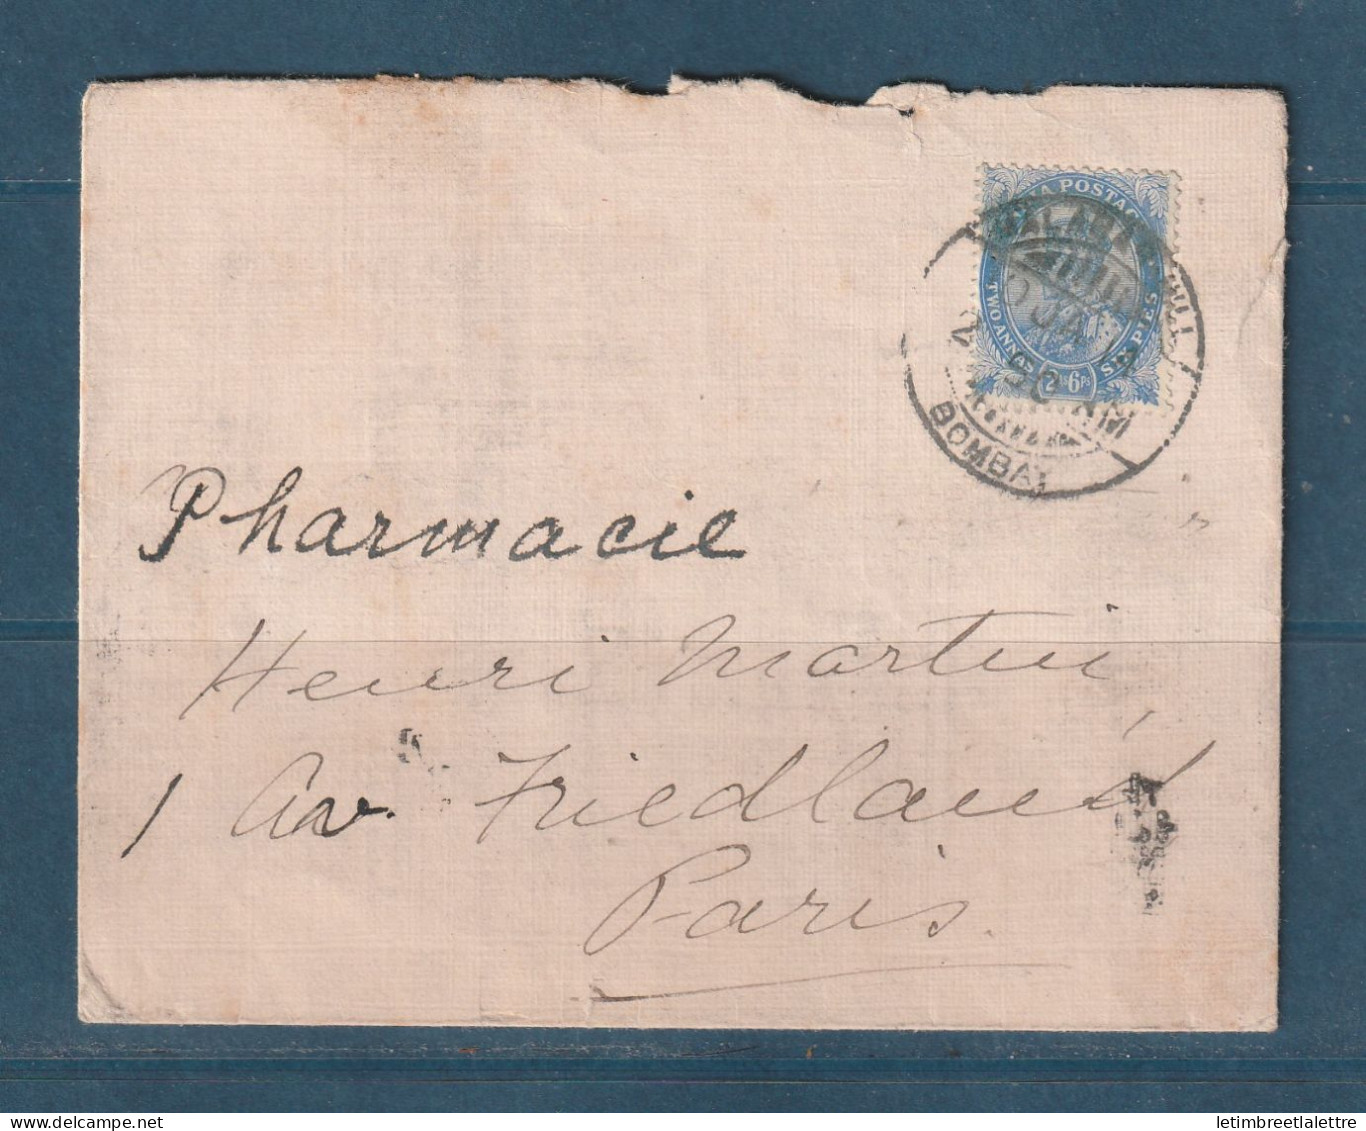 INDIA POSTAGE
TWO ANNAS SIX PIES
2 As 6 Ps
MALABAR HILL
JA
BOMBAY
Pharmacie
Henri Martin
1 Av. Friedland
Paris.
letimbreetlalettre